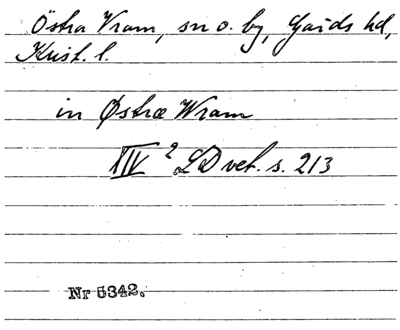 Östra Vram, sn o. by, Gärds hd,
Krist. l.
in Østræ Wram
XIV 2 LDvet. s. 213
Nr 5342.